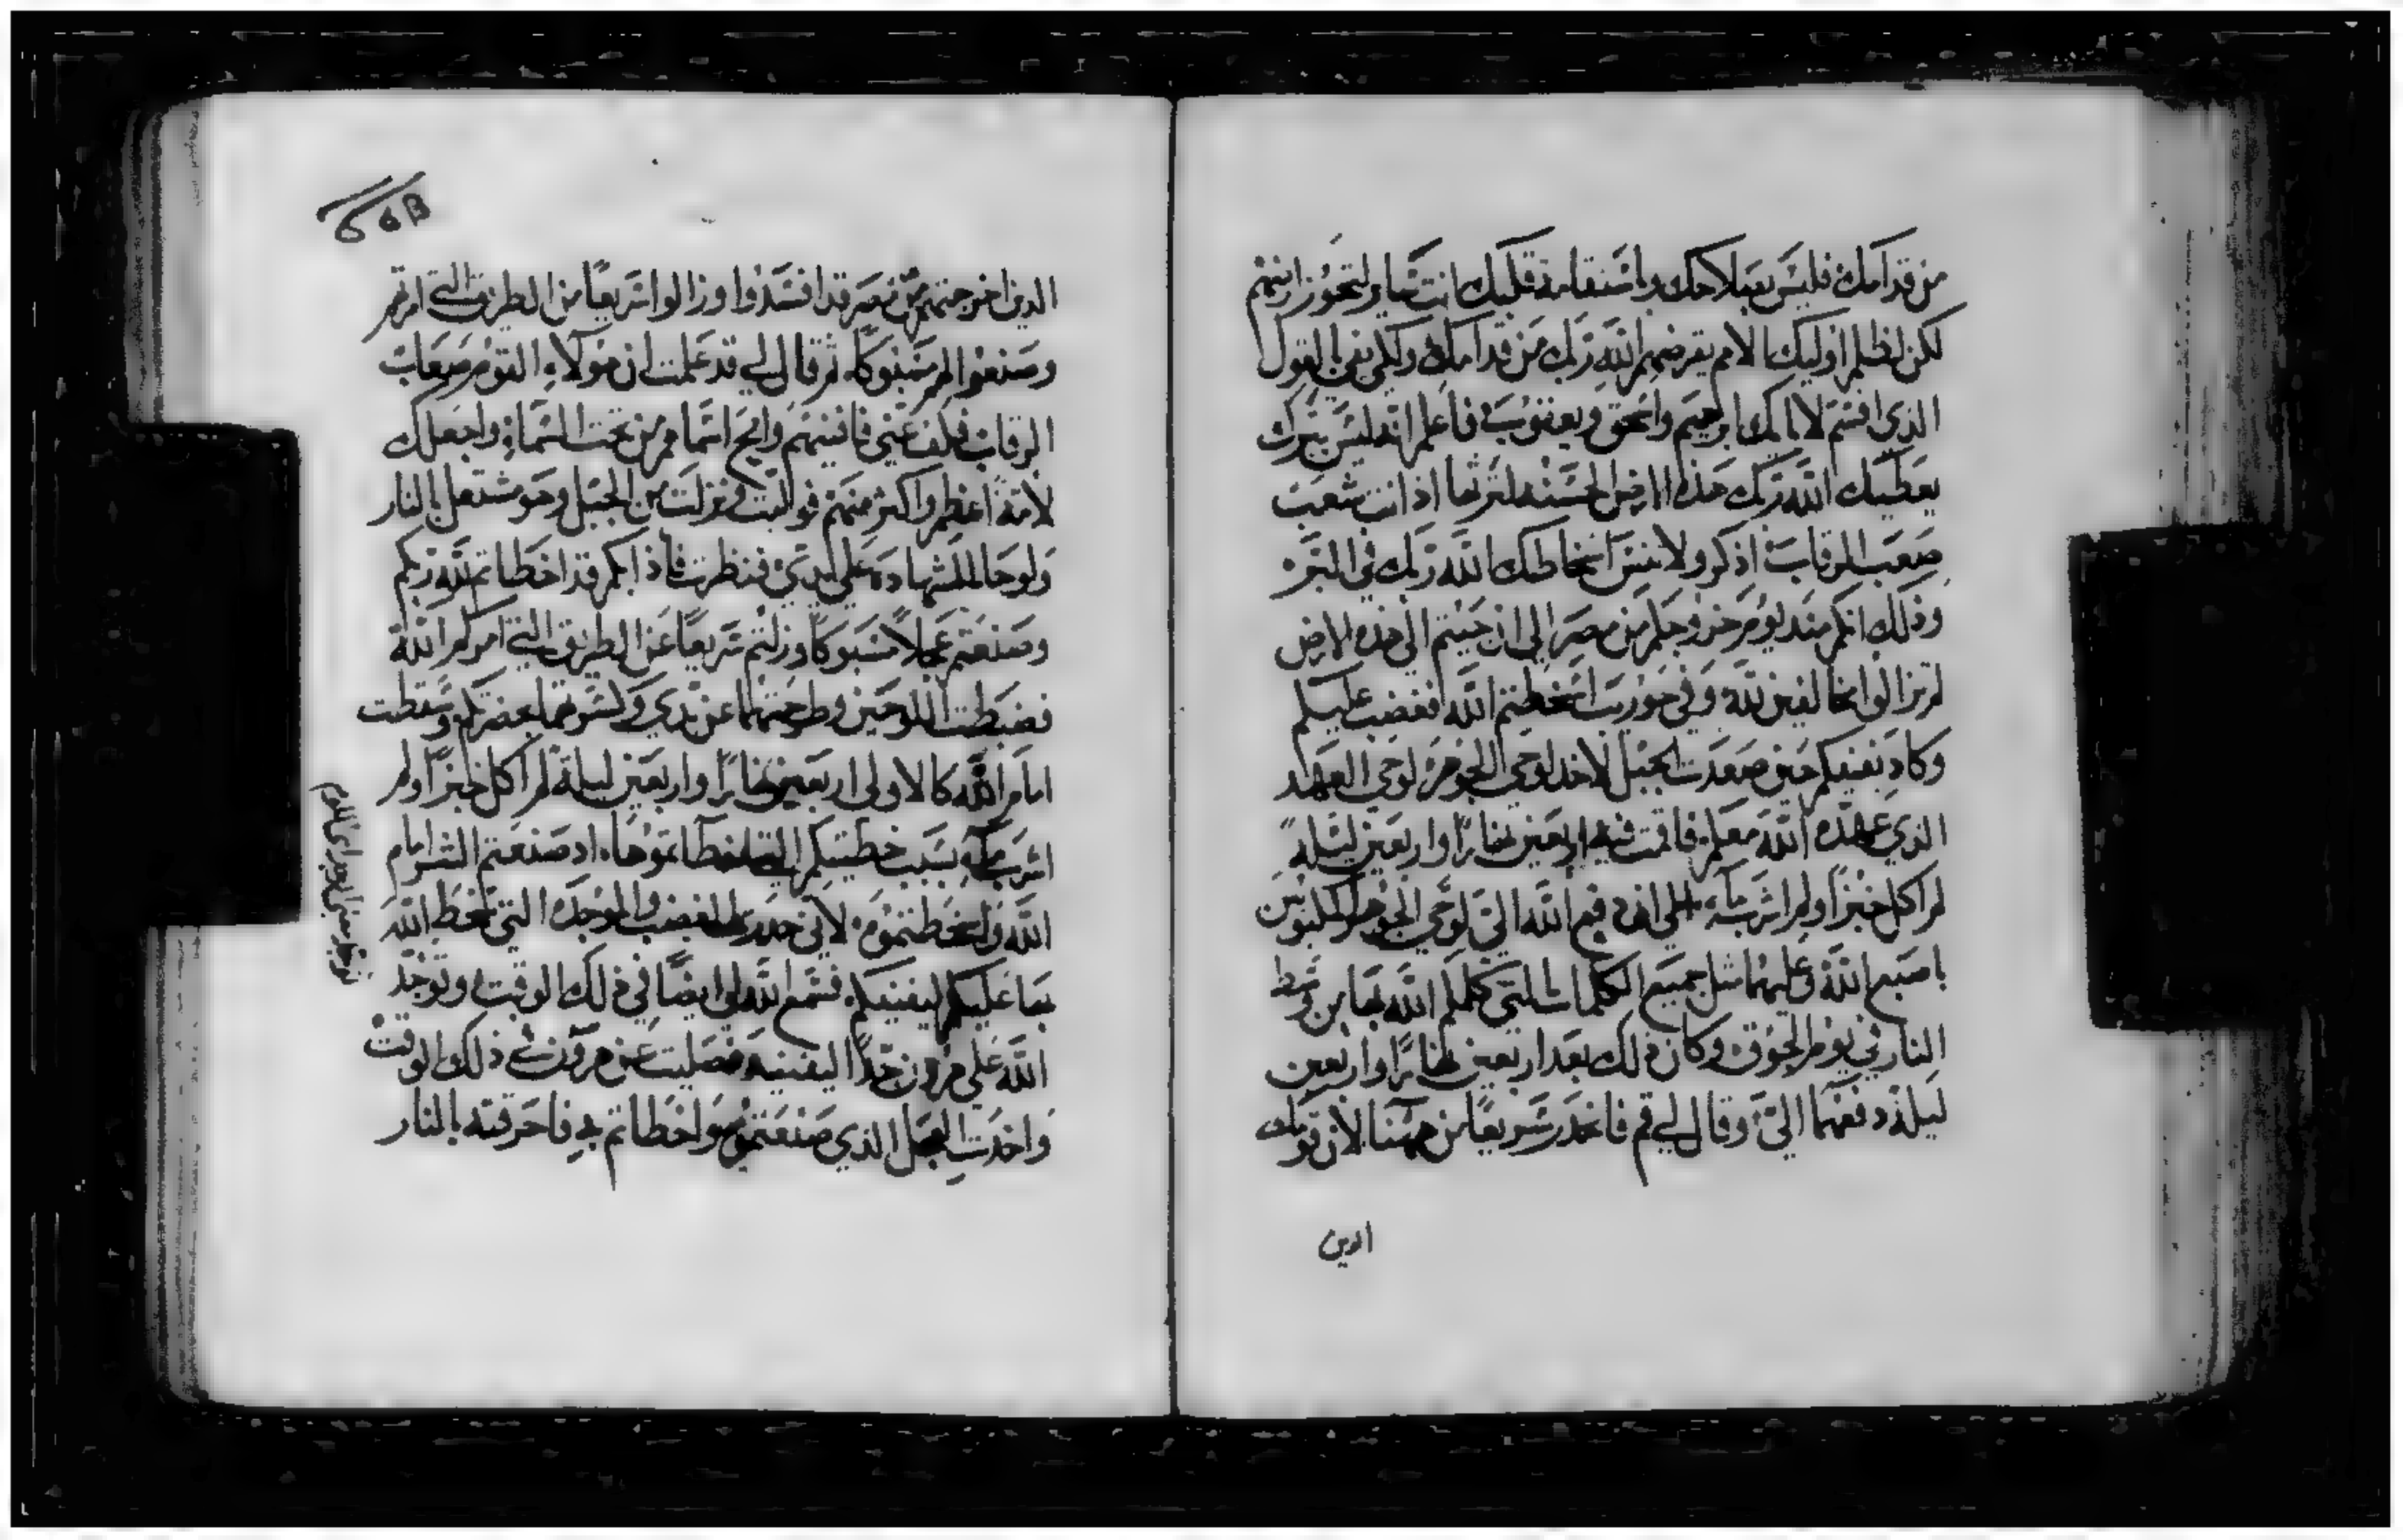 من قدامك فليس بعملاحك وباستقامة قلبك انت تساير لتحوز ارضهم
لكن لظلم اوليك الامم يقرضهم الله ربك من قدامك ولكى يفى بالقول
الذي اقسم لابايك ابرهيم واسحق ويعقوب فاعلم انه ليس ببرك
يعطيك الله ربك هذه الارض الحسنه لترثها اذ انت شعب
صعب الرقاب اذكر ولا تنس اسخاطك الله ربك في البر
وذلك انكم منذ يوم خروجكم من مصر الى ان جيتم الى هذه الارض
لم تزالوا مخالفين لله وفي حوريب اسخطتم الله فغضب عليكم
وكاد يفنيكم حين صعدت الجبل لاخذ لوحى الجوهر لوحى العهد
الذي عهده الله معكم فاقمت فيه اربعين نهارًا واربعين ليلة
لم اكل خبزًا ولم اشرب ماء الى ان دفع الله الي لوحي الجوهر المكتوبين
باصبع الله وعليهما مثل جميع الكلمات التى كلمكم الله بها من وسط
النار في يوم الجوق وكان ذلك بعد اربعين نهارًا واربعين
ليلة دفعهما الىّ وقال لي قم فانحدر سريعًا من ههنا لان قومك
الدين
66B
الدين اخرجتهم من مصر قد افسدوا وزالوا سريعًا من الطريق التي امرتهم
وصنعوا لهم مسبوكًا ثم قال لي قد علمت ان هولاء القوم صعاب
الرقاب فكف عني فافنيهم وامح اسماهم من تحت السماء واجعلك
لامة اعظم واكثر منهم فوليت ونزلت من الجبل وهو مشتعل بالنار
ولوحا الشهادة على يديّ فنظرت فاذا بكم قد اخطاتم لله ربكم
وصنعتم عجلاً مسبوكًا وزلتم سريعًا عن الطريق التي امركم الله
فضبطت اللوحين وطرحتهما عن يدي وكسرتهما بحضرتكم وسقطت
امام الله كالاولى اربعين نهارًا واربعين ليلة لم اكل خبزًا ولم
اشرب ماء بسبب خطيتكم التي اخطاتموها اذ صنعتم الشر امام
الله واسخطتموه لانى حذرت الغضب والموجده التى سخط الله
بها عليكم ليفنيكم فسمع الله لى ايضًا في ذلك الوقت وتوجد
الله على هرون جدًا ليفنيه فصليت عن هرون في ذلك الوقت
واخذت العجل الذي صنعتموه واخطاتم به فاحرقته بالنار